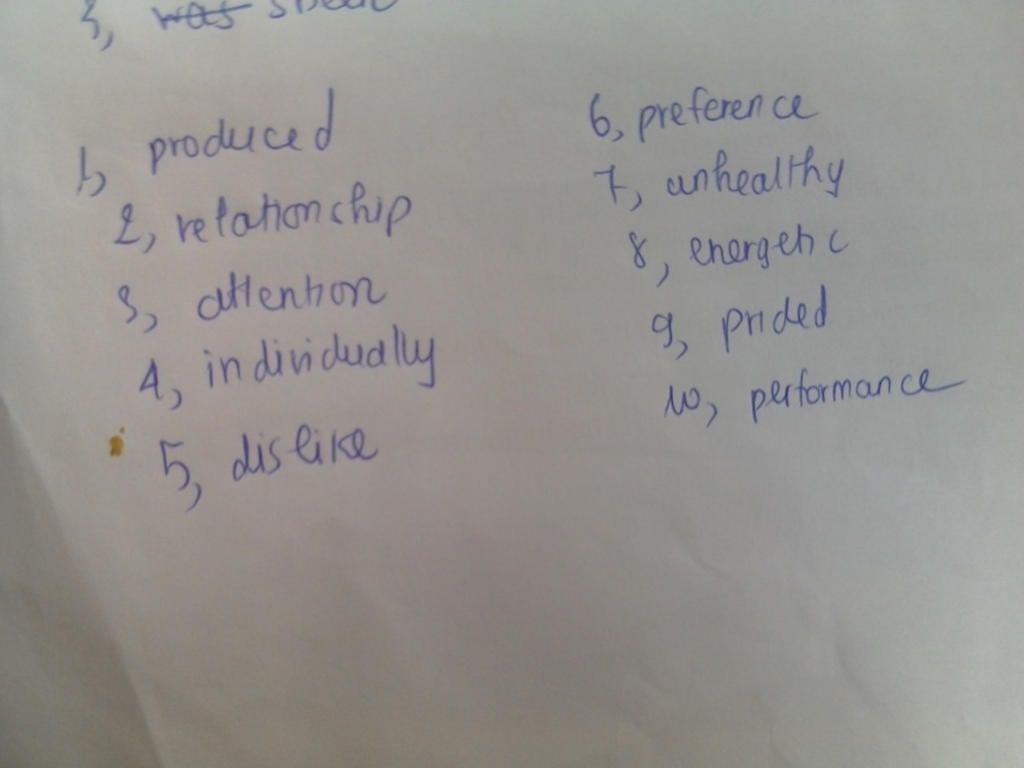 3, was
1, produced
2, relationchip
3, attention
4, individually
5, dislike
6, preference
7, unhealthy
8, energetic
9, prided
10, performance